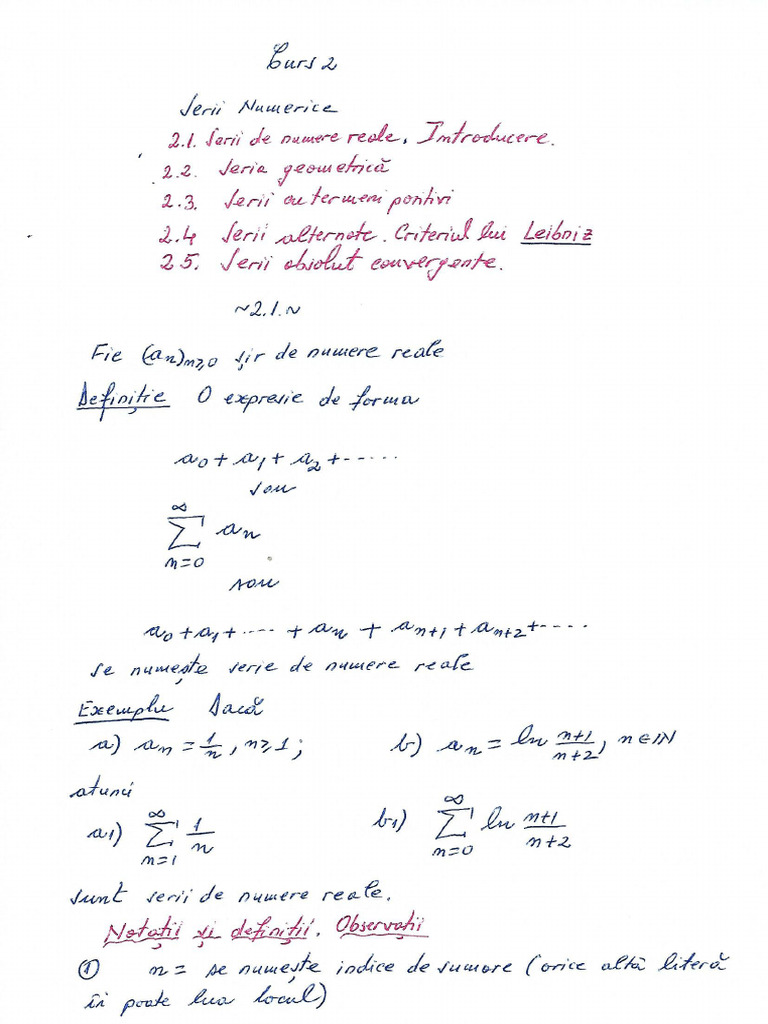 Curs 2
Serii Numerice
2.1. Serii de numere reale. Introducere.
2.2. Seria geometrică
2.3. Serii cu termeni pozitivi
2.4 Serii alternate. Criteriul lui Leibniz
2.5. Serii absolut convergente.
~2.1.~
Fie (an)n≥0 șir de numere reale
Definiție O expresie de forma
a0 + a1 + a2 + ......
sau
∞
∑ an
n=0
sau
a0 + a1 + .... + an + an+1 + an+2 + .....
se numește serie de numere reale
Exemplu Dacă
a) an = 1/n, n≥1; b) an = ln (n+1)/(n+2), n∈ℕ
atunci
a1) ∑_{n=1}^{∞} 1/n b1) ∑_{n=0}^{∞} ln (n+1)/(n+2)
sunt serii de numere reale.
Notații și definiții. Observații
① n = se numește indice de sumare (orice altă literă
îi poate lua locul)